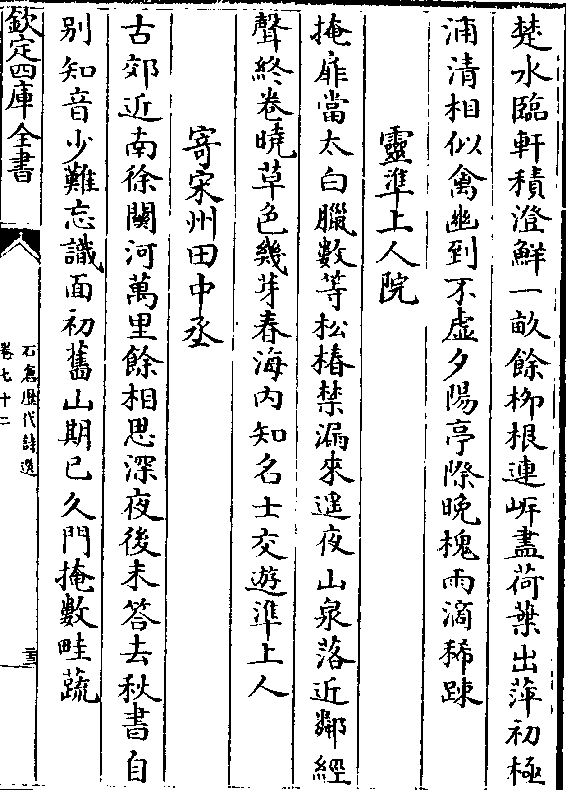 楚水臨軒積澄鮮一畝餘栁根連岍盡荷葉出萍初極
浦清相似禽幽到不虚夕陽亭際晚槐雨滴稀踈
靈準上人院
掩扉當太白臘數等松椿禁漏來遥夜山泉落近鄰經
聲終卷曉草色幾芽春海内知名士交遊準上人
寄宋州田中丞
古郊近南徐關河萬里餘相思深夜後未答去秋書自
别知音少難忘識面初舊山期已久門掩數畦蔬
欽定四庫全書
石倉歴代詩選
卷七十二